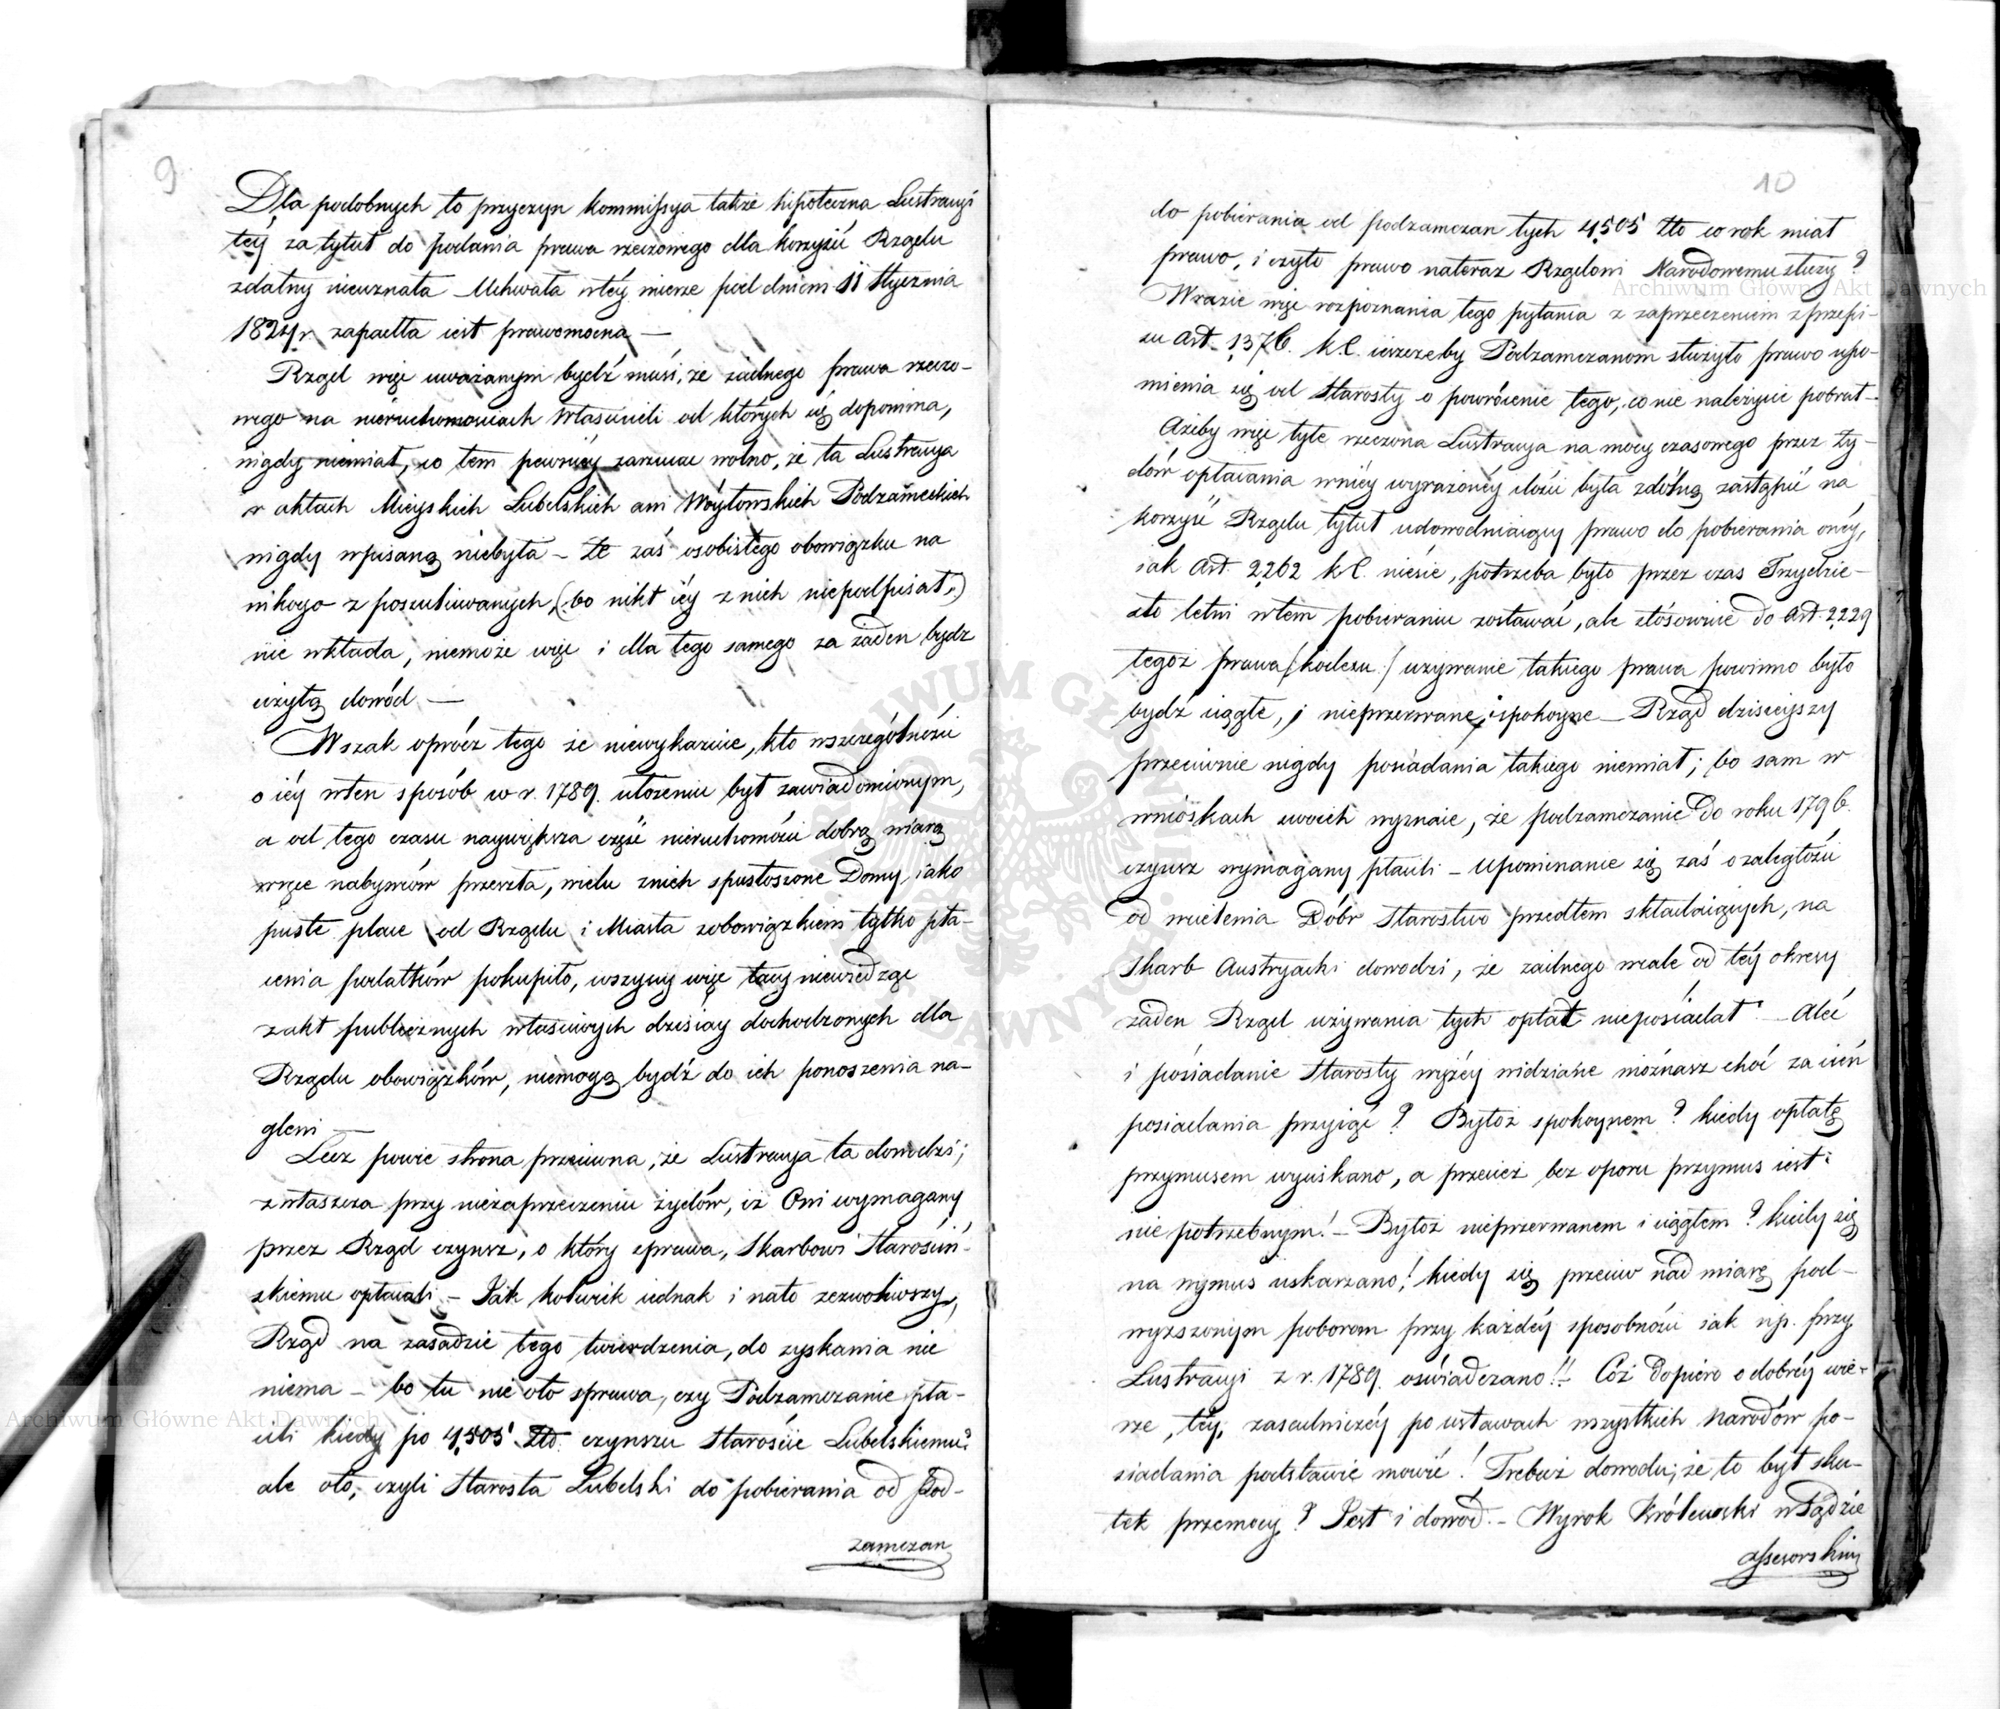 9
Dla podobnych to przyczyn kommissya także hipoteczna Lustracyi
tey za tytuł do podania prawa rzeczowego dla korzyści Rządu
zdatny nieuznała – Uchwała w téy mierze pod dniem 11 Stycznia
1824 r. zapadła iest prawomocna —
Rząd więc uważanym bydź musi, że żadnego prawa rzeczo-
wego na nieruchomościach Właścicieli od których się dopomina,
nigdy niemiał, co tem pewniéy zarzucać wolno, że ta Lustracya
w aktach Mieyskich Lubelskich ani Wóytowskich Podzamcskich
nigdy wpisaną niebyła – Że zaś osobistego obowiązku na
nikogo z poszukiwanych, (bo nikt iéy z nich niepodpisał,)
nie wkłada, niemoże więc i dla tego samego za żaden bydz
użytą dowód —
Wszak oprócz tego że niewykazuie, kto wszczególności
o iéy wten sposób w r. 1789. ułożeniu był zawiadomionym,
a od tego czasu naywiększa część nieruchomości dobrą wiarą
w ręce nabywców przeszła, wielu znich spustoszone Domy, iako
puste place od Rządu i Miasta zobowiązkiem tylko pła-
cenia podatków pokupiło, wszyscy więc tacy niewiedząc
z akt publicznych właściwych dzisiay dochodzonych dla
Rządu obowiązków, niemogą bydź do ich ponoszenia na-
gleni —
Lecz powie strona przeciwna, że Lustracya ta dowodzi;
zwłaszcza przy niezaprzeczeniu żydów, iż Oni wymagany
przez Rząd czynsz, o który sprawa, Skarbowi Starościń-
skiemu opłacali – Jak kolwiek iednak i nato zezwoliwszy,
Rząd na zasadzie tego twierdzenia, do zyskania nic
niema – bo tu nie oto sprawa, czy Podzamczanie pła-
cili kiedy po 4,505 Złto. czynszu Staroście Lubelskiemu?
ale oto, czyli Starosta Lubelski do pobierania od Pod-
zamczan
10
do pobierania od podzamczan tych 4,505 Złto co rok miał
prawo, i czyto prawo nateraz Rządowi Narodowemu służy?
Wrazie więc rozpoznania tego pytania z zaprzeczeniem z przepi-
su Art. 1376. K.C. ieszczeby Podzamczanom służyło prawo upo-
mienia się od Starosty o powrócenie tego, co nie należycie pobrał –
Ażeby więc tyle rzeczona Lustracya na mocy czasowego przez Ży-
dów opłacania wniéy wyrażonéy ilości była zdolną zastąpić na
korzyść Rządu tytuł udowodniaiący prawo do pobierania onéy,
iak Art. 2262 K.C. niesie, potrzeba było przez czas Trzydzie-
sto letni wtem pobieraniu zostawać, ale stósownie do Art. 2229
tegoż prawa (kodexu) używanie takiego prawa powinno było
bydź ciągłe, i nieprzerwane, i spokoyne – Rząd dzisieyszy
przeciwnie nigdy posiadania takiego niemiał; bo sam w
wnioskach swoich wyznaie, że podzamczanie do roku 1796.
czynsz wymagany płacili – Upominanie się zaś o zaległości
od wcielenia Dóbr Starostwo przedtem składaiących, na
Skarb Austryacki dowodzi, że żadnego wcale od téy okresy
żaden Rząd używania tych opłat nieposiadał – Aleć
i posiadanie Starosty wyżéy widziane możnasz choć za cień
posiadania przyiąć? Byłoż spokoynem? kiedy opłatę
przymusem wyciskano, a przecież bez oporu przymus iest
nie potrzebnym! – Byłoż nieprzerwanem i ciągłem? kiedy się
na wymus uskarzano! kiedy się przeciw nad miarę pod-
wyższonym poborom przy każdéy sposobności iak np. przy
Lustracyi z r. 1789. oświadczano!! Cóż dopiero o dobréy wie-
rze, téy, zasadniczéy po ustawach wszystkich Narodów po-
siadania podstawie mówić! Trebasz dowodu; że to był sku-
tek przemocy? Jest i dowód. – Wyrok Królewski w Sądzie
assessorskim
Archiwum Główne Akt Dawnych
Archiwum Główne Akt Dawnych
ARCHIWUM GŁÓWNE AKT DAWNYCH